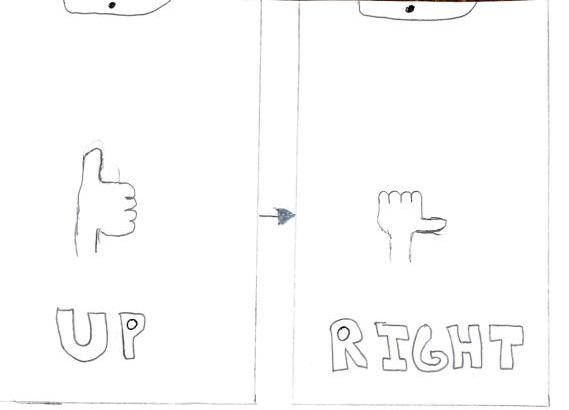 UP
RIGHT